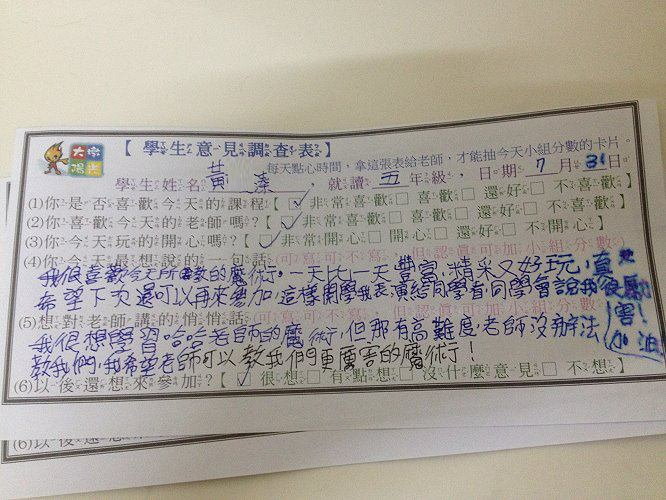 大家陽光
【學生意見調查表】
每天點心時間，拿這張表給老師，才能抽今天小組分數的卡片。
學生姓名 黃 溱，就讀 五 年級，日期 7 月 31 日。
(1)你是否喜歡今天的課程【□非常喜歡□喜歡□還好□不喜歡】
(2)你喜歡今天的老師嗎？【□非常喜歡□喜歡□還好□不喜歡】
(3)你今天玩的開心嗎？【□非常開心□開心□還好□不開心】
(4)你今天最想說的一句話(可寫可不寫，但認真可加小組分數)
我很喜歡今天所教的魔術。一天比一天豐富,精采又好玩,真
希望下次還可以再來參加,這樣開學我表演給同學看,同學會說我很厲害!
(5)想對老師講的悄悄話(可寫可不寫，但認真可加小組分數)
加油
我很想學習哈哈老師的魔術,但那有高難度,老師沒辦法
教我們,我希望老師可以教我們更厲害的魔術!
(6)以後還想來參加？【□很想□有點想□沒什麼意見□不想】
(6)以後還想